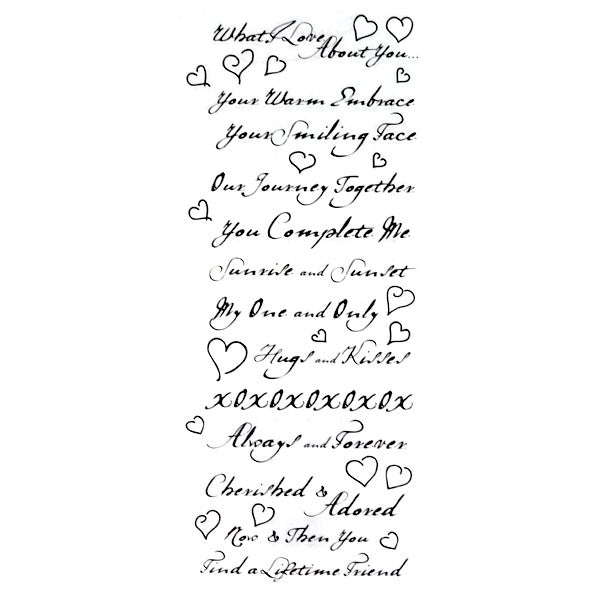 What I Love
About You...
Your Warm Embrace
Your Smiling Face
Our Journey Together
You Complete Me
Sunrise and Sunset
My One and Only
Hugs and Kisses
xoxoxoxoxox
Always and Forever
Cherished &
Adored
Now & Then You
Find a Lifetime Friend